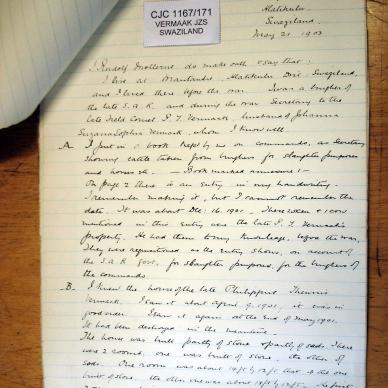 CJC 1167/171
VERMAAK JZS
SWAZILAND
Hlatikulu
Swaziland.
May 21 1903
I Rudolf do make oath & say that:
I live at Hlatikulu Dis: Swaziland,
and I lived there before the war. I was a burgher of
the late S.A.R. and during the war Secretary to the
late Field Cornet P. J. Vermaak, husband of Johanna
Suzana Sophia Vermaak, whom I know well.
A. I put in a book kept by me on commando, as Secretary
showing cattle taken from burghers for slaughter purposes
and horses etc. — Book marked annexure 1 —
On page 2 there is an entry in my handwriting.
I remember making it, but I cannot remember the
date. It was about Dec: 16. 1901. The oxen & 1 cow
mentioned in this entry was the late P. J. Vermaak's
property. He had them to my knowledge, before the war.
They were requisitioned as the entry shows, on account of
the S.A.R. Govt. for slaughter purposes, for the burghers of
the commando.
B. I knew the house of the late Philippus Theunis
Vermaak. I saw it about April 9. 1901, it was in
good order. I saw it again at the end of May 1901.
It had been destroyed in the meantime.
The house was built partly of stone & partly of sods. There
were 2 rooms, one was built of stone, the other of
sods. One room was about that is the one
built of stone, the other one was about